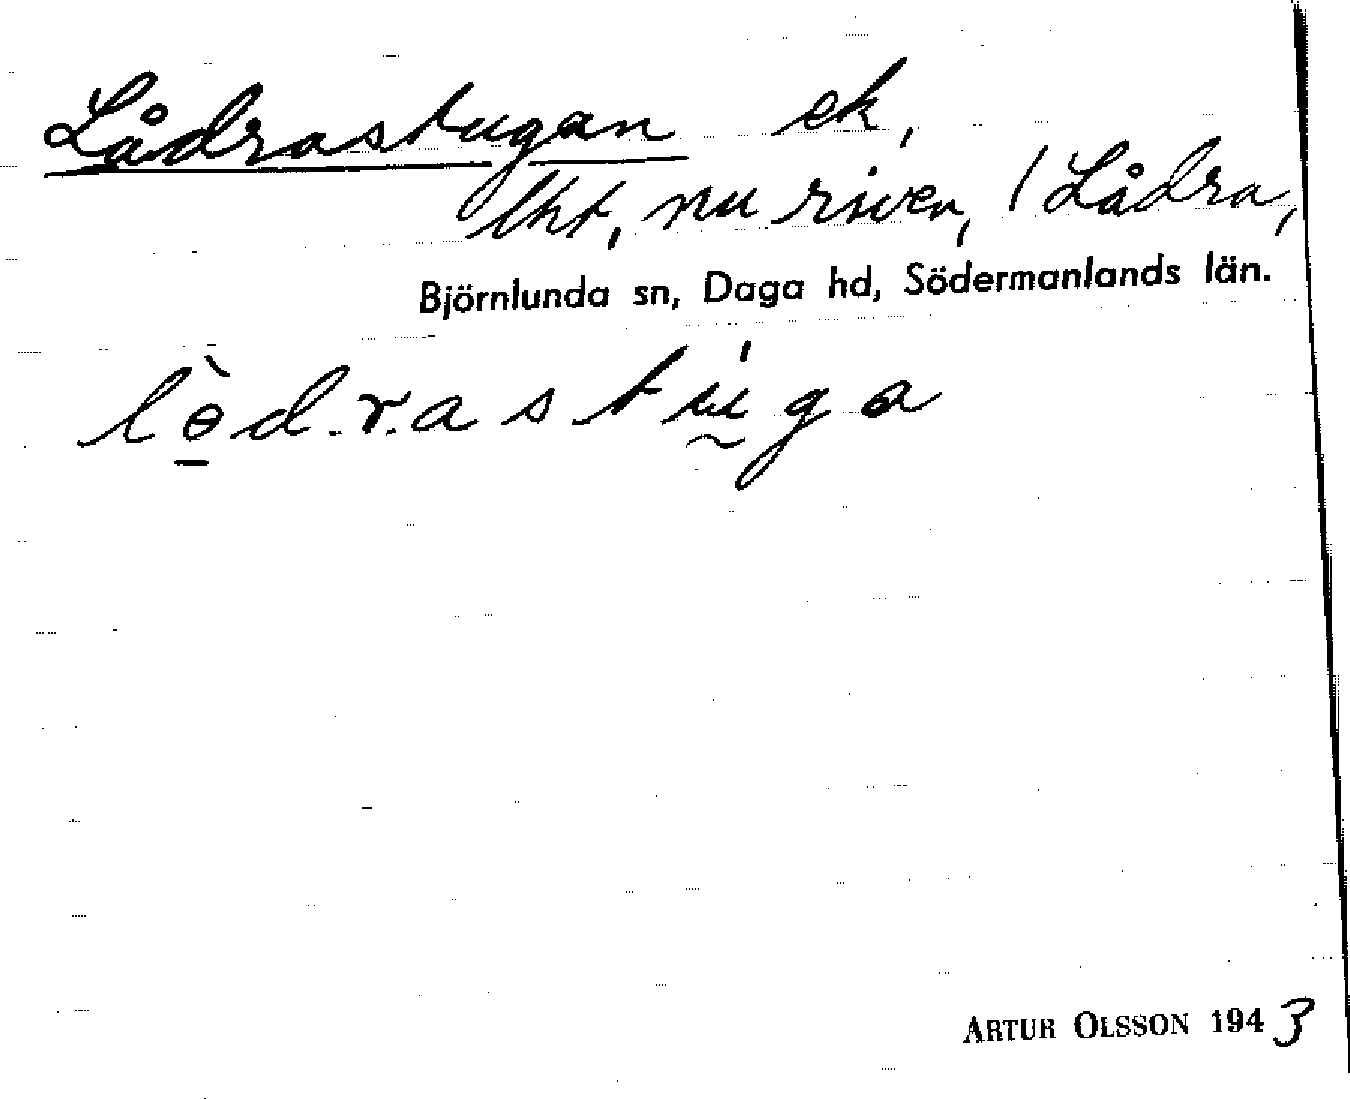 Lådrastugan ek,
lht, nu riven, / Lådra,
Björnlunda sn, Daga hd, Södermanlands län.
lòdrastúga
ARTUR OLSSON 1943